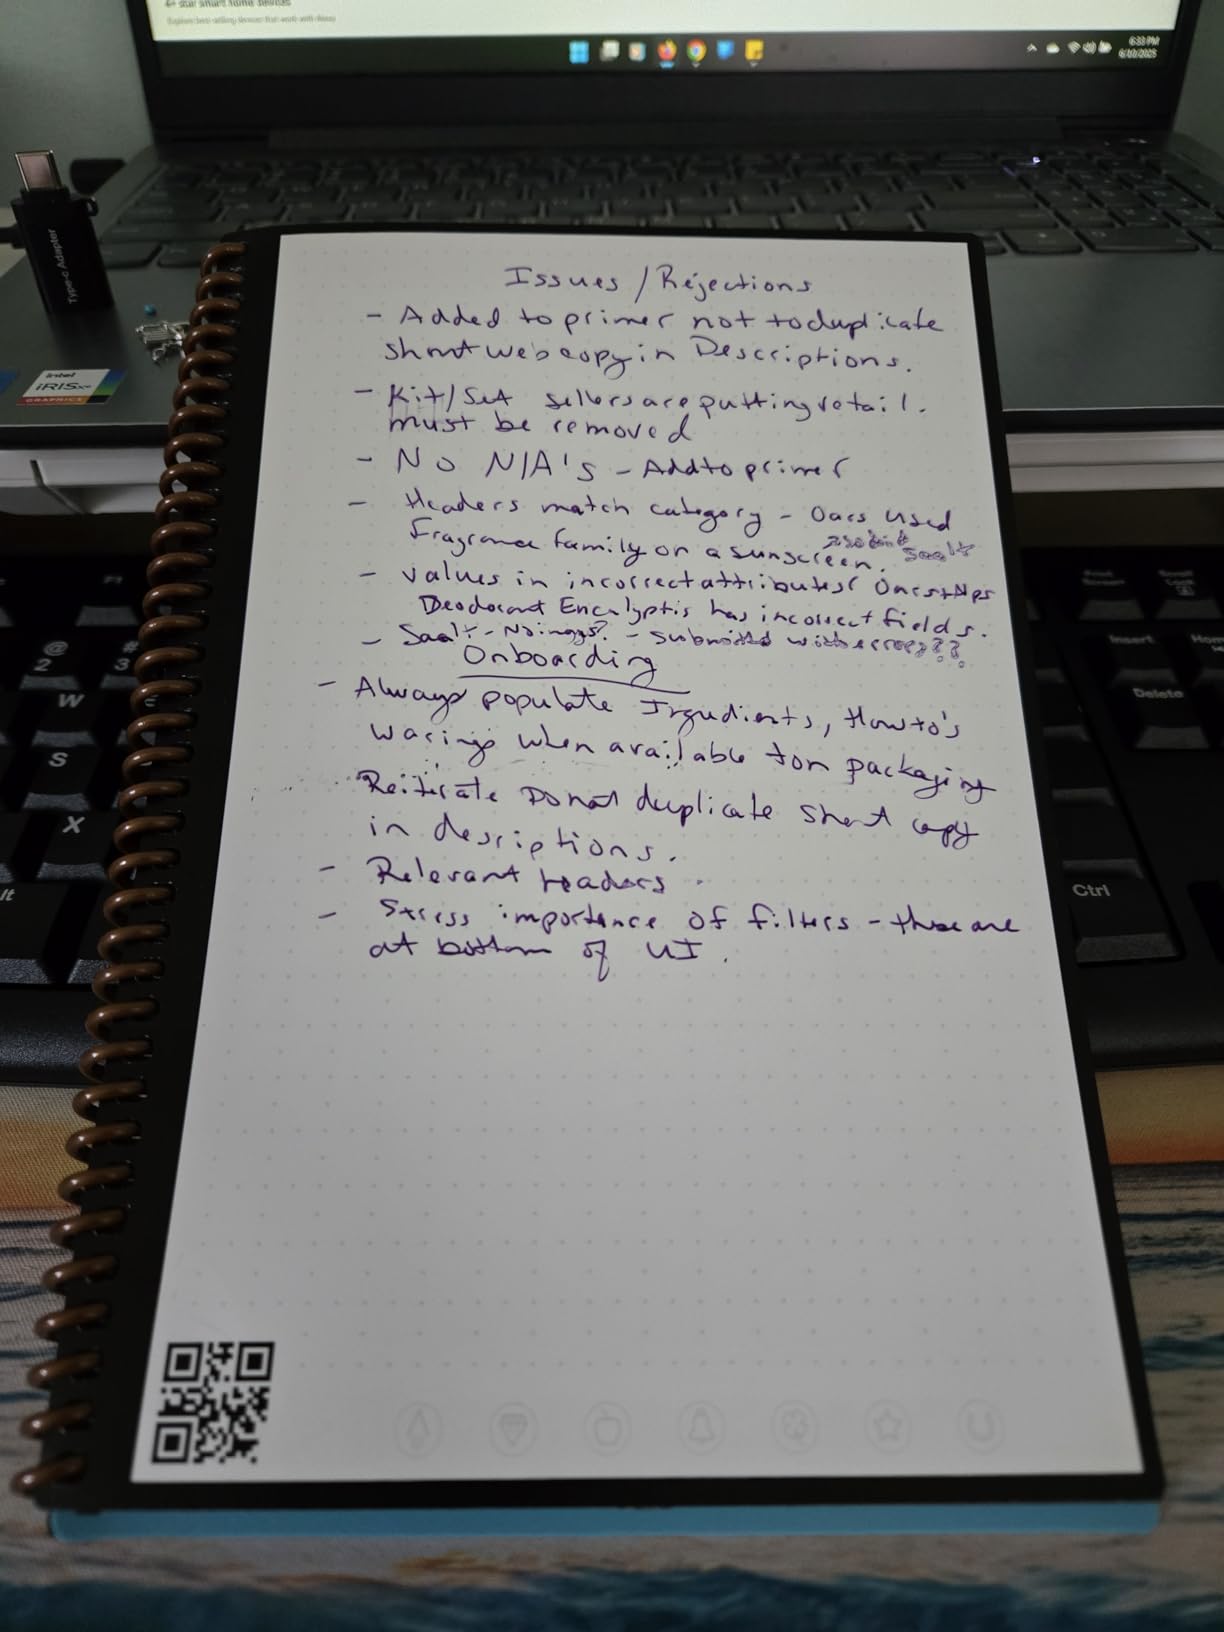 4+ star smart home devices
Explore best-selling devices that work with Alexa
6:33 PM
6/10/2025
Type-c Adapter
intel
iRISxe
GRAPHICS
Issues / Rejections
- Added to primer not to duplicate
short web copy in Descriptions.
- Kit/Set sellers are putting retail.
must be removed
- No N/A's - Add to primer
- Headers match category - Oars used
Fragrance family on a sunscreen.
Saalt
- Values in incorrect attributes( Oars + Alps
Deodorant Encalyptis has incorrect fields.
- Saalt - No imgs? - Submitted with errors???
Onboarding
- Always populate Ingredients, How to's
Warings when available for packaging
Reiterate Do not duplicate short copy
in descriptions.
- Relevant headers
- Stress importance of filters - these are
at bottom of UI.
@
2
#
3
W
S
X
lt
F1
Print
Screen
Scroll
Lock
Insert
Home
Delete
Ctrl